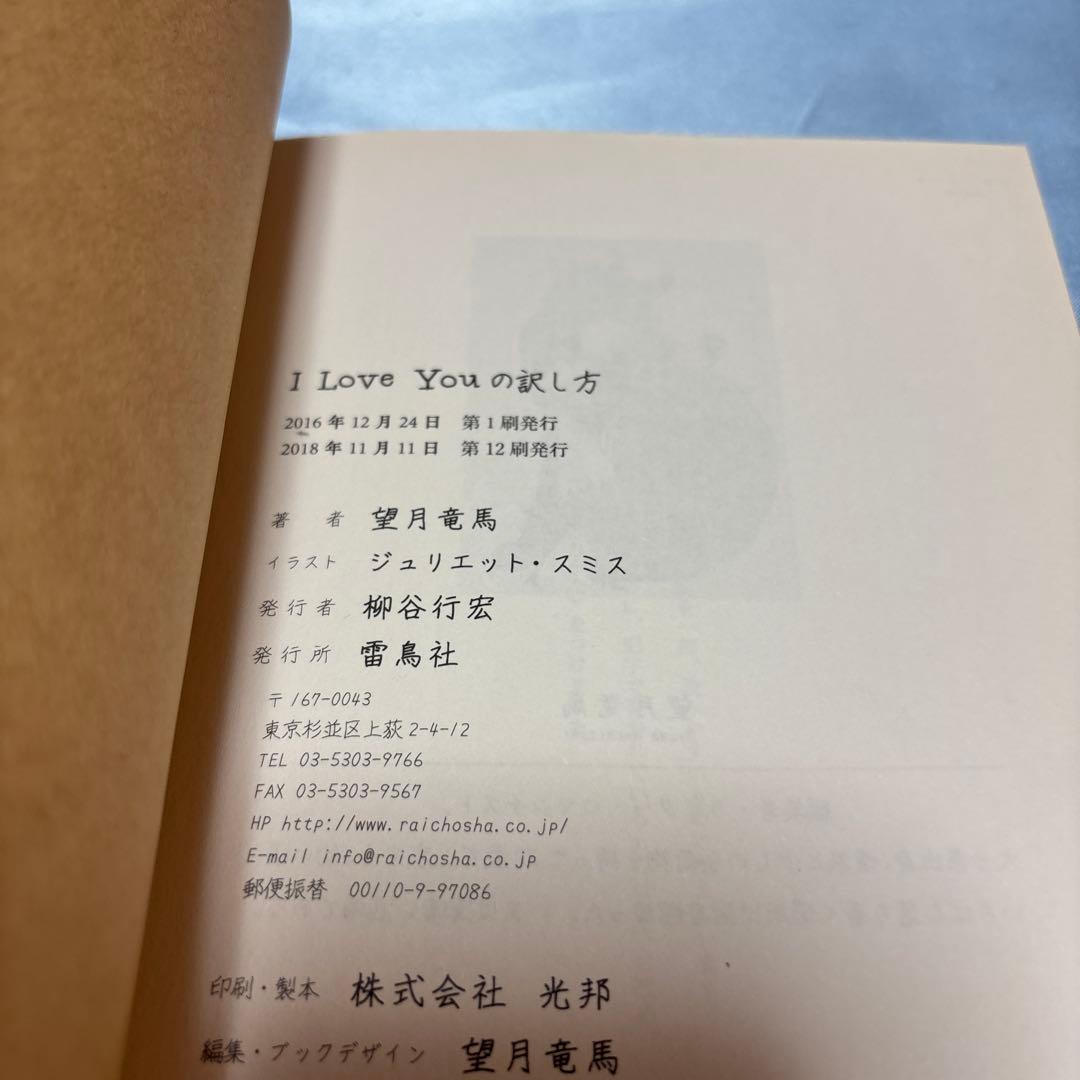 I Love Youの訳し方
2016年12月24日 第1刷発行
2018年11月11日 第12刷発行
著 者 望月竜馬
イラスト ジュリエット・スミス
発行者 柳谷行宏
発行所 雷鳥社
〒167-0043
東京杉並区上荻2-4-12
TEL 03-5303-9766
FAX 03-5303-9567
HP http://www.raichosha.co.jp/
E-mail info@raichosha.co.jp
郵便振替 00110-9-97086
印刷・製本 株式会社 光邦
編集・ブックデザイン 望月竜馬